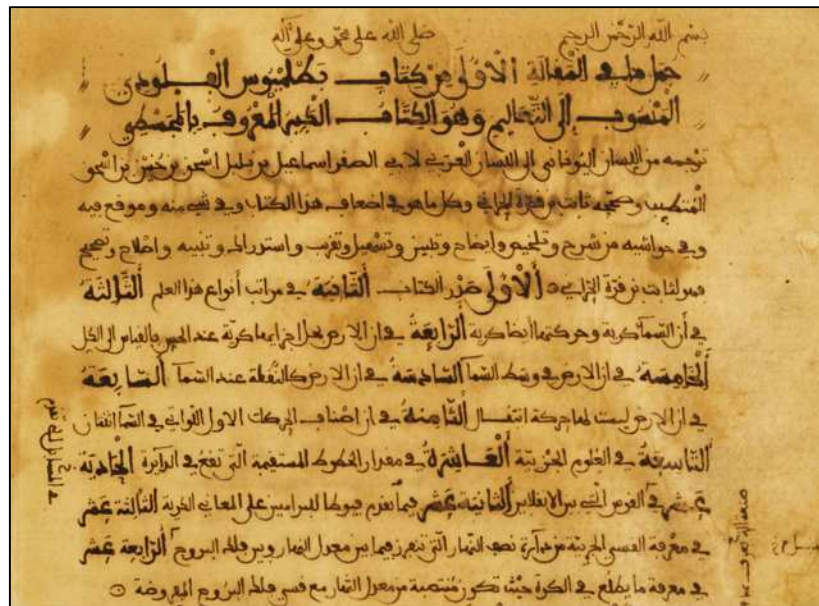 بسم الله الرحمن الرحيم صلى الله على محمد وعلى آله
جمل ما في المقالة الأولى من كتاب بطلميوس القلوذي
المنسوب إلى التعاليم وهو الكتاب الكبير المعروف بالمجسطي
ترجمه من اللسان اليوناني الى اللسان العربي لابي الصقر اسماعيل بن بلبل اسحق بن حنين بن اسحق
المتطبب وصححه ثابت بن قرة الحراني وكل ما هو في اضعاف هذا الكتاب وفي شيء منه وموقع فيه
وفي حواشيه من شرح وتلخيص وإيضاح وتبيين وتسهيل وتقريب واستدراك وتنبيه واصلاح وتصحيح
فهو لثابت بن قرة الحراني الأولى صدر الكتاب الثانية في مراتب أنواع هذا العلم الثالثة
في أن السماء كرية وحركتها ايضا كرية الرابعة في ان الارض بكل اجزايها كرية عند الحس بالقياس الى الكل
الخامسة في ان الارض في وسط السماء السادسة في ان الارض كالنقطة عند السماء السابعة
في ان الارض ليست لها حركة انتقال الثامنة في ان اصناف الحركات الاول اللواتي في السماء اثنتان
التاسعة في العلوم الجزئية العاشرة في مقدار الخطوط المستقيمة التي تقع في الدايرة الحادية
عشر في القوس التي بين الانقلابين الثانية عشر فيما نقدم قبولها للبراهين على المعاني الكرية الثالثة عشر
في معرفة القسي الجزئية من دايرة نصف النهار التي تنحرز فيما بين معدل النهار وبين فلك البروج الرابعة عشر
في معرفة ما يطلع في الكرة حيث تكون منتصبة من معدل النهار مع قسي فلك البروج المفروضة